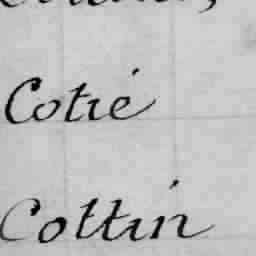 Cotié
Cottin